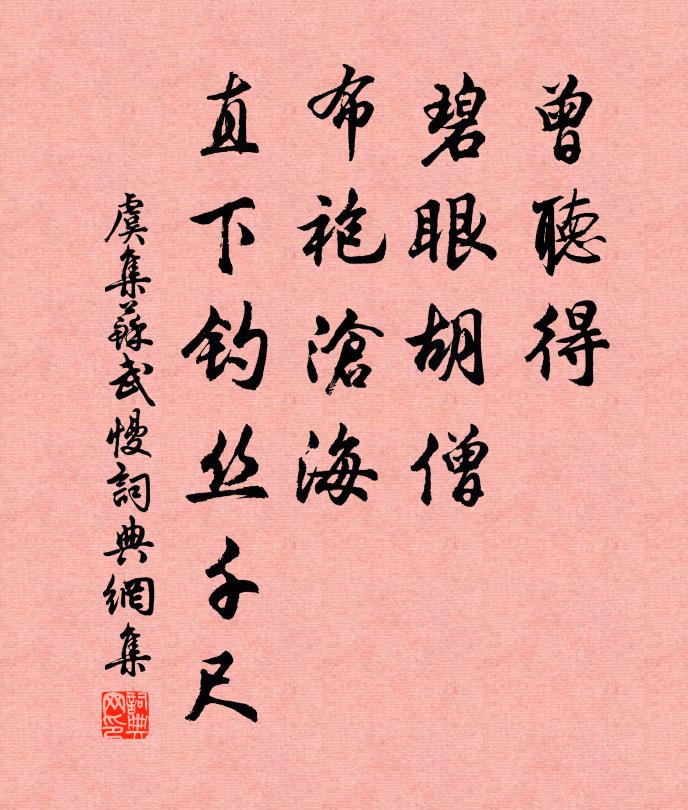 曾聽得
碧眼胡僧
布袍滄海
直下钓丝千尺
虞集蘇武慢詞典網集
詞典网印